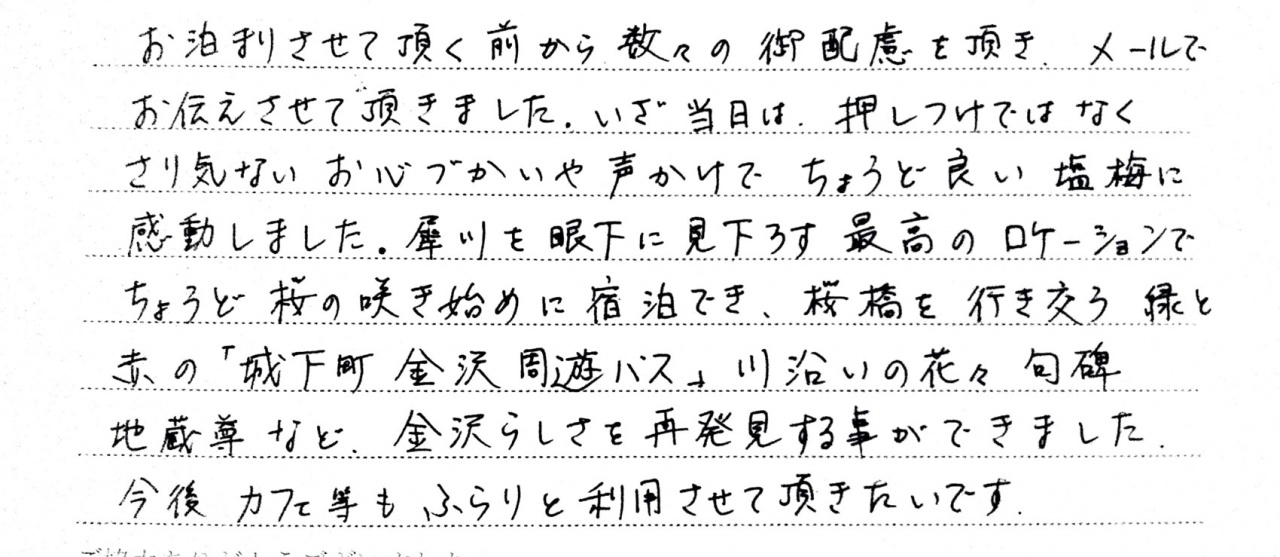 お泊まりさせて頂く前から数々の御配慮を頂き、メールで
お伝えさせて頂きました。いざ当日は、押しつけではなく
さり気ないお心づかいや声かけで ちょうど良い塩梅に
感動しました。犀川を眼下に見下ろす最高のロケーションで
ちょうど桜の咲き始めに宿泊でき、桜橋を行き交う緑と
赤の「城下町金沢周遊バス」川沿いの花々 句碑
地蔵尊など、金沢らしさを再発見する事ができました。
今後カフェ等もふらりと利用させて頂きたいです。